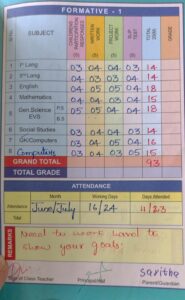 FORMATIVE - 1
Sl.No. SUBJECT CHILDRENS PARTICIPATION RESPONSES WRITTEN WORK PROJECT WORK SLIP TEST TOTAL 20M. GRADE
(5) (5) (5) (5)
1 I st Lang 03 04 04 03 14
2 II nd Lang 04 03 03 04 14
3 English 04 05 05 04 18
4 Mathematics 04 04 03 04 15
5 Gen.Science P.S. 05 04 05 04 18
EVS B.S
6 Social Studies 03 04 04 03 14
7 GK/Computers 04 04 03 04
8 Computers 03 04 03 05 15
GRAND TOTAL 93
TOTAL GRADE
ATTENDANCE
Month Working Days Days Attended
Attendance June/July 16/24 11/23
Total
REMARKS
Need to work hard to
show your goals!
Savitha
Sig. of Class Teacher Principal/HM Parent/Guardian